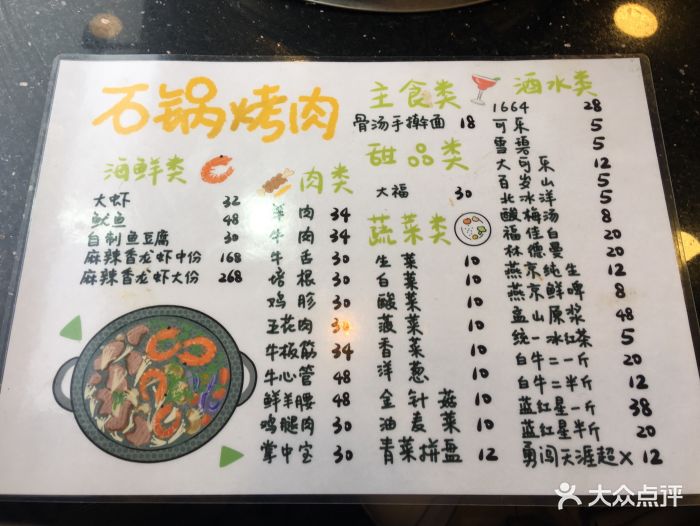 石锅烤肉
海鲜类
大虾 32
鱿鱼 48
自制鱼豆腐 30
麻辣香龙虾中份 168
麻辣香龙虾大份 268
肉类
羊肉 34
牛肉 34
牛舌 30
培根 30
鸡胗 30
五花肉 30
牛板筋 34
牛心管 48
鲜羊腰 48
鸡腿肉 30
掌中宝 30
主食类
骨汤手擀面 18
甜品类
大福 30
蔬菜类
生菜 10
白菜 10
酸菜 10
菠菜 10
香菜 10
洋葱 10
金针菇 10
油麦菜 10
青菜拼盘 12
酒水类
1664 28
可乐 5
雪碧 5
大可乐 12
百岁山 5
北冰洋 5
酸梅汤 8
福佳白 20
林德曼 20
燕京纯生 12
燕京鲜啤 8
山原浆 48
统一冰红茶 5
白牛二一斤 20
白牛二半斤 12
蓝红星一斤 38
蓝红星半斤 20
勇闯天涯超X 12
大众点评